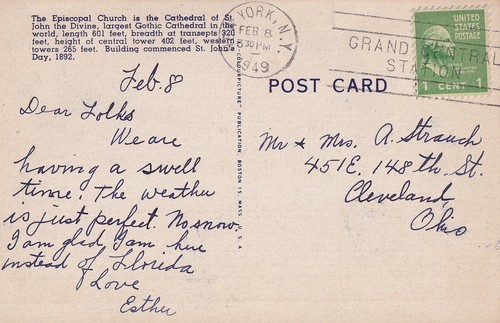 The Episcopal Church is the Cathedral of St.
John the Divine, largest Gothic Cathedral in the
world, length 601 feet, breadth at transepts 320
feet, height of central tower 402 feet, western
towers 265 feet. Building commenced St. John's
Day, 1892.
Feb. 8
Dear Folks
We are
having a swell
time. The weather
is just perfect. No snow.
I am glad I am here
instead of Florida
Love
Esther
"COLOURPICTURE" PUBLICATION BOSTON 15 MASS. U.S.A.
YORK, N.Y.
FEB 8
630 PM
1949
GRAND CENTRAL
STATION
UNITED
STATES
POSTAGE
1 CENT 1
POST CARD
Mr & Mrs. A. Strauch
451 E. 148th. St.
Cleveland,
Ohio